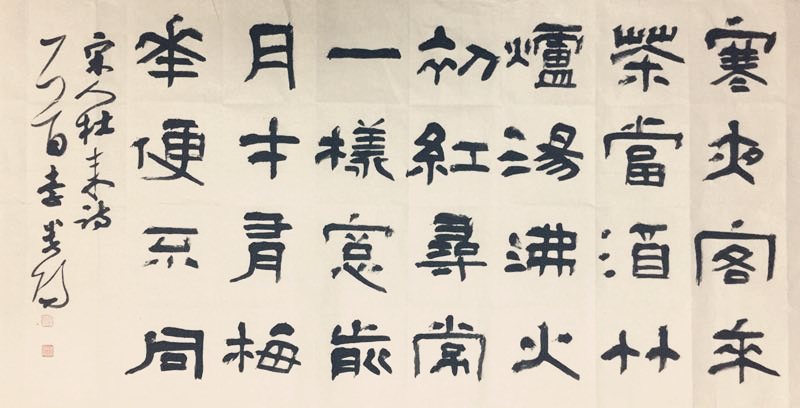 寒夜客來
茶當酒竹
爐湯沸火
初紅尋常
一樣窓前
月才有梅
花便不同
宋人杜耒詩